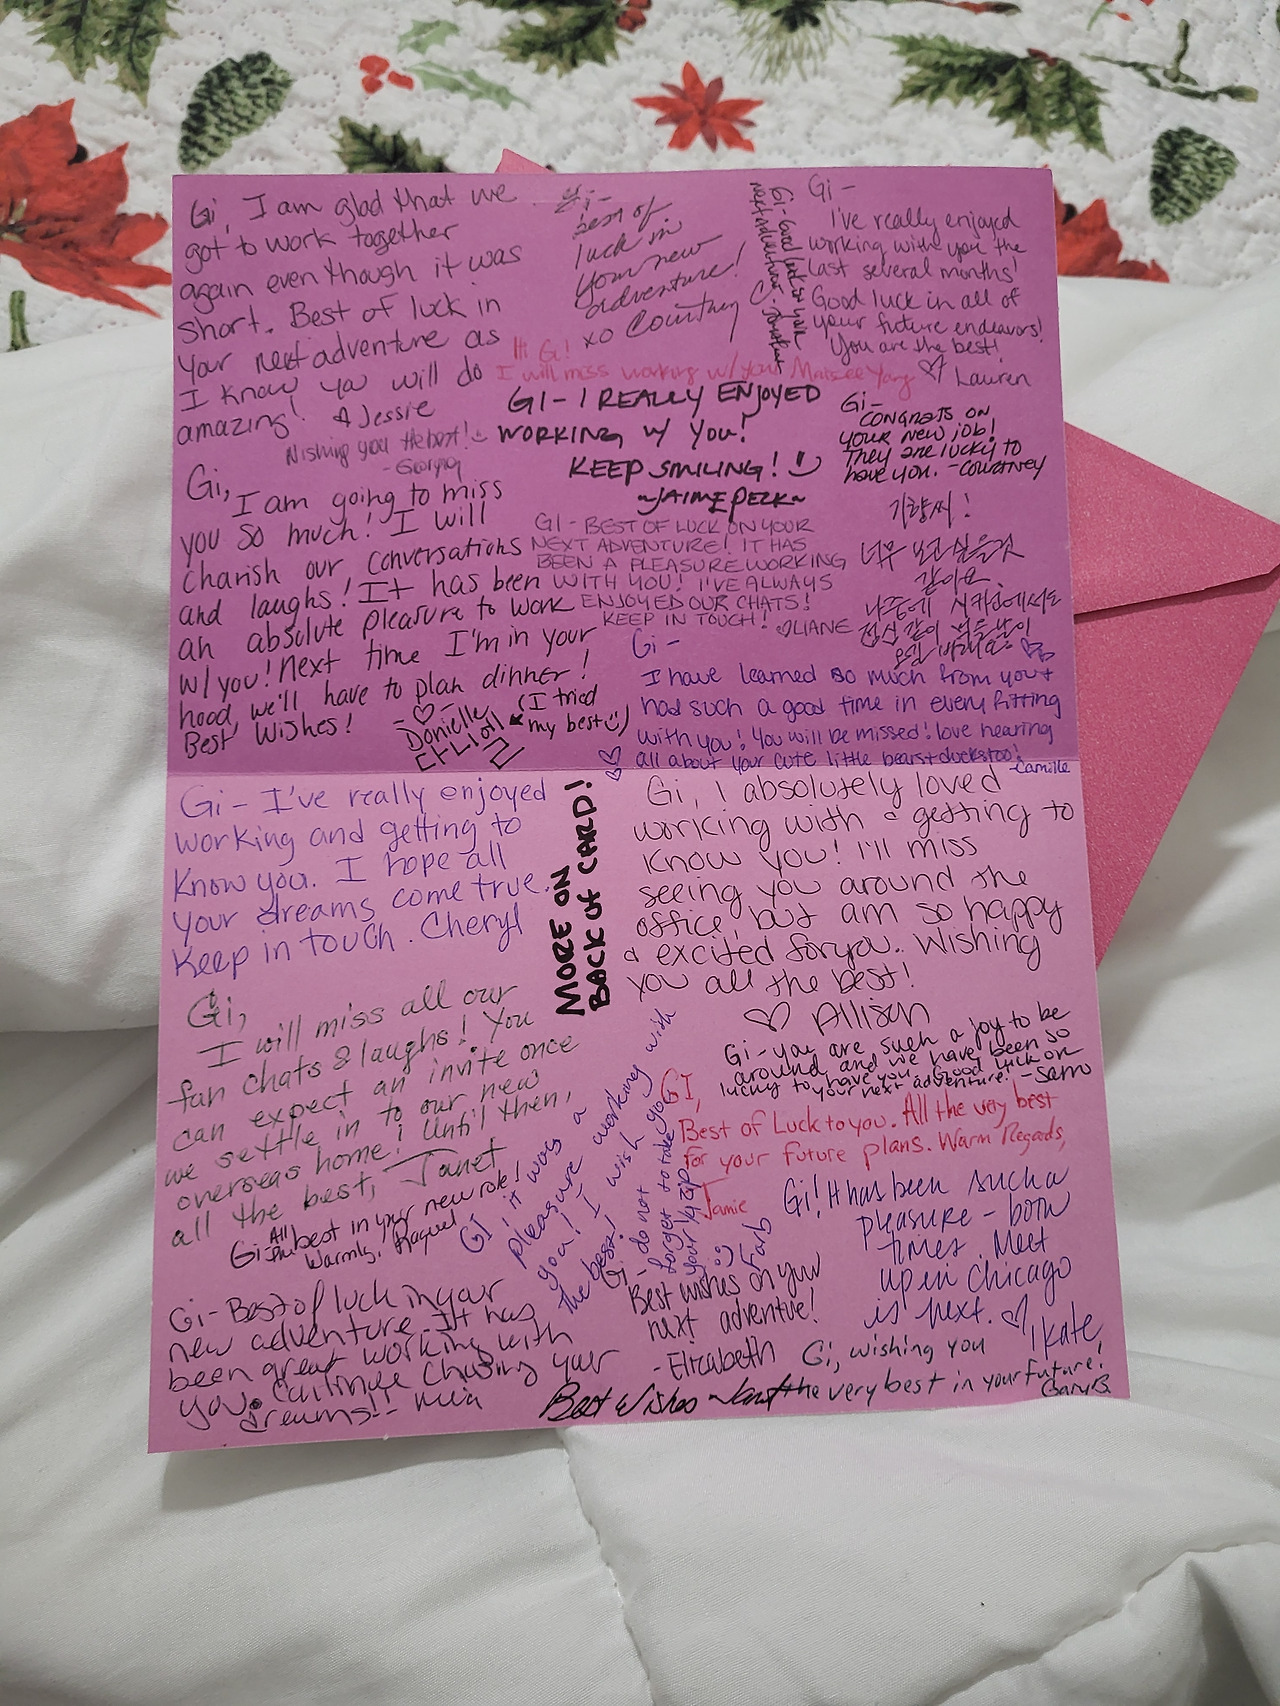 Gi, I am glad that we
got to work together
again even though it was
short. Best of luck in
your next adventure as
I know you will do
amazing! Jessie
Wishing you the best!
- Georgia
Gi-
best of
luck in
your new
adventure!
xo Courtney
Gi- Good luck on your
next adventure! -
Gi-
I've really enjoyed
working with you the
last several months!
Good luck in all of
your future endeavors!
You are the best!
♡ Lauren
Hi Gi!
I will miss working w/ you! Maisee Yang
GI- I REALLY ENJOYED
WORKING W/ YOU!
KEEP SMILING! ☺
~JAIME PECK~
Gi-
CONGRATS ON
your new job!
They are lucky to
have you. -Courtney
Gi,
I am going to miss
you so much! I will
charish our conversations
and laughs! It has been
an absolute pleasure to work
w/you! Next time I'm in your
hood, we'll have to plan dinner!
Best Wishes!
-♡-
Danielle
(I tried
my best☺)
GI- BEST OF LUCK ON YOUR
NEXT ADVENTURE! IT HAS
BEEN A PLEASURE WORKING
WITH YOU! I'VE ALWAYS
ENJOYED OUR CHATS!
KEEP IN TOUCH! ♡LIANE
기량씨!
너무 보고싶을것
같아요.
나중에 시카고에서도
점심 같이 먹을날이
오길 바래요!
Gi-
I have learned so much from you +
had such a good time in every fitting
with you! You will be missed! love hearing
all about your cute little bears+ducks too!
-Camille
Gi- I've really enjoyed
working and getting to
know you. I hope all
your dreams come true.
Keep in touch. Cheryl
MORE ON
BACK OF CARD!
Gi, I absolutely loved
working with & getting to
know you! I'll miss
seeing you around the
office, but am so happy
& excited for you. Wishing
you all the best!
♡ Allison
Gi,
I will miss all our
fun chats & laughs! You
can expect an invite once
we settle in to our new
overseas home! Until then,
all the best, Janet
Gi- you are such a joy to be
around, and we have been so
lucky to have you. Good luck on
your next adventure! -Sam
GI,
Best of Luck to you. All the very best
for your future plans. Warm Regards,
Jamie
Gi, All the best in your new role!
Warmly, Raquel
GI, it was a
pleasure working with
you! I wish you
the best!
Gi- do not
forget to take
your nap
☺
Farb
Gi! It has been such a
pleasure - both
times. Meet
up in Chicago
is next. ♡
Kate
Gi- Best of luck in your
new adventure. It has
been great working with
you. Continue chasing your
dreams!! - Mia
Best wishes on your
next adventure!
-Elizabeth
Best Wishes
Gi, wishing you
the very best in your future!
Gary B.